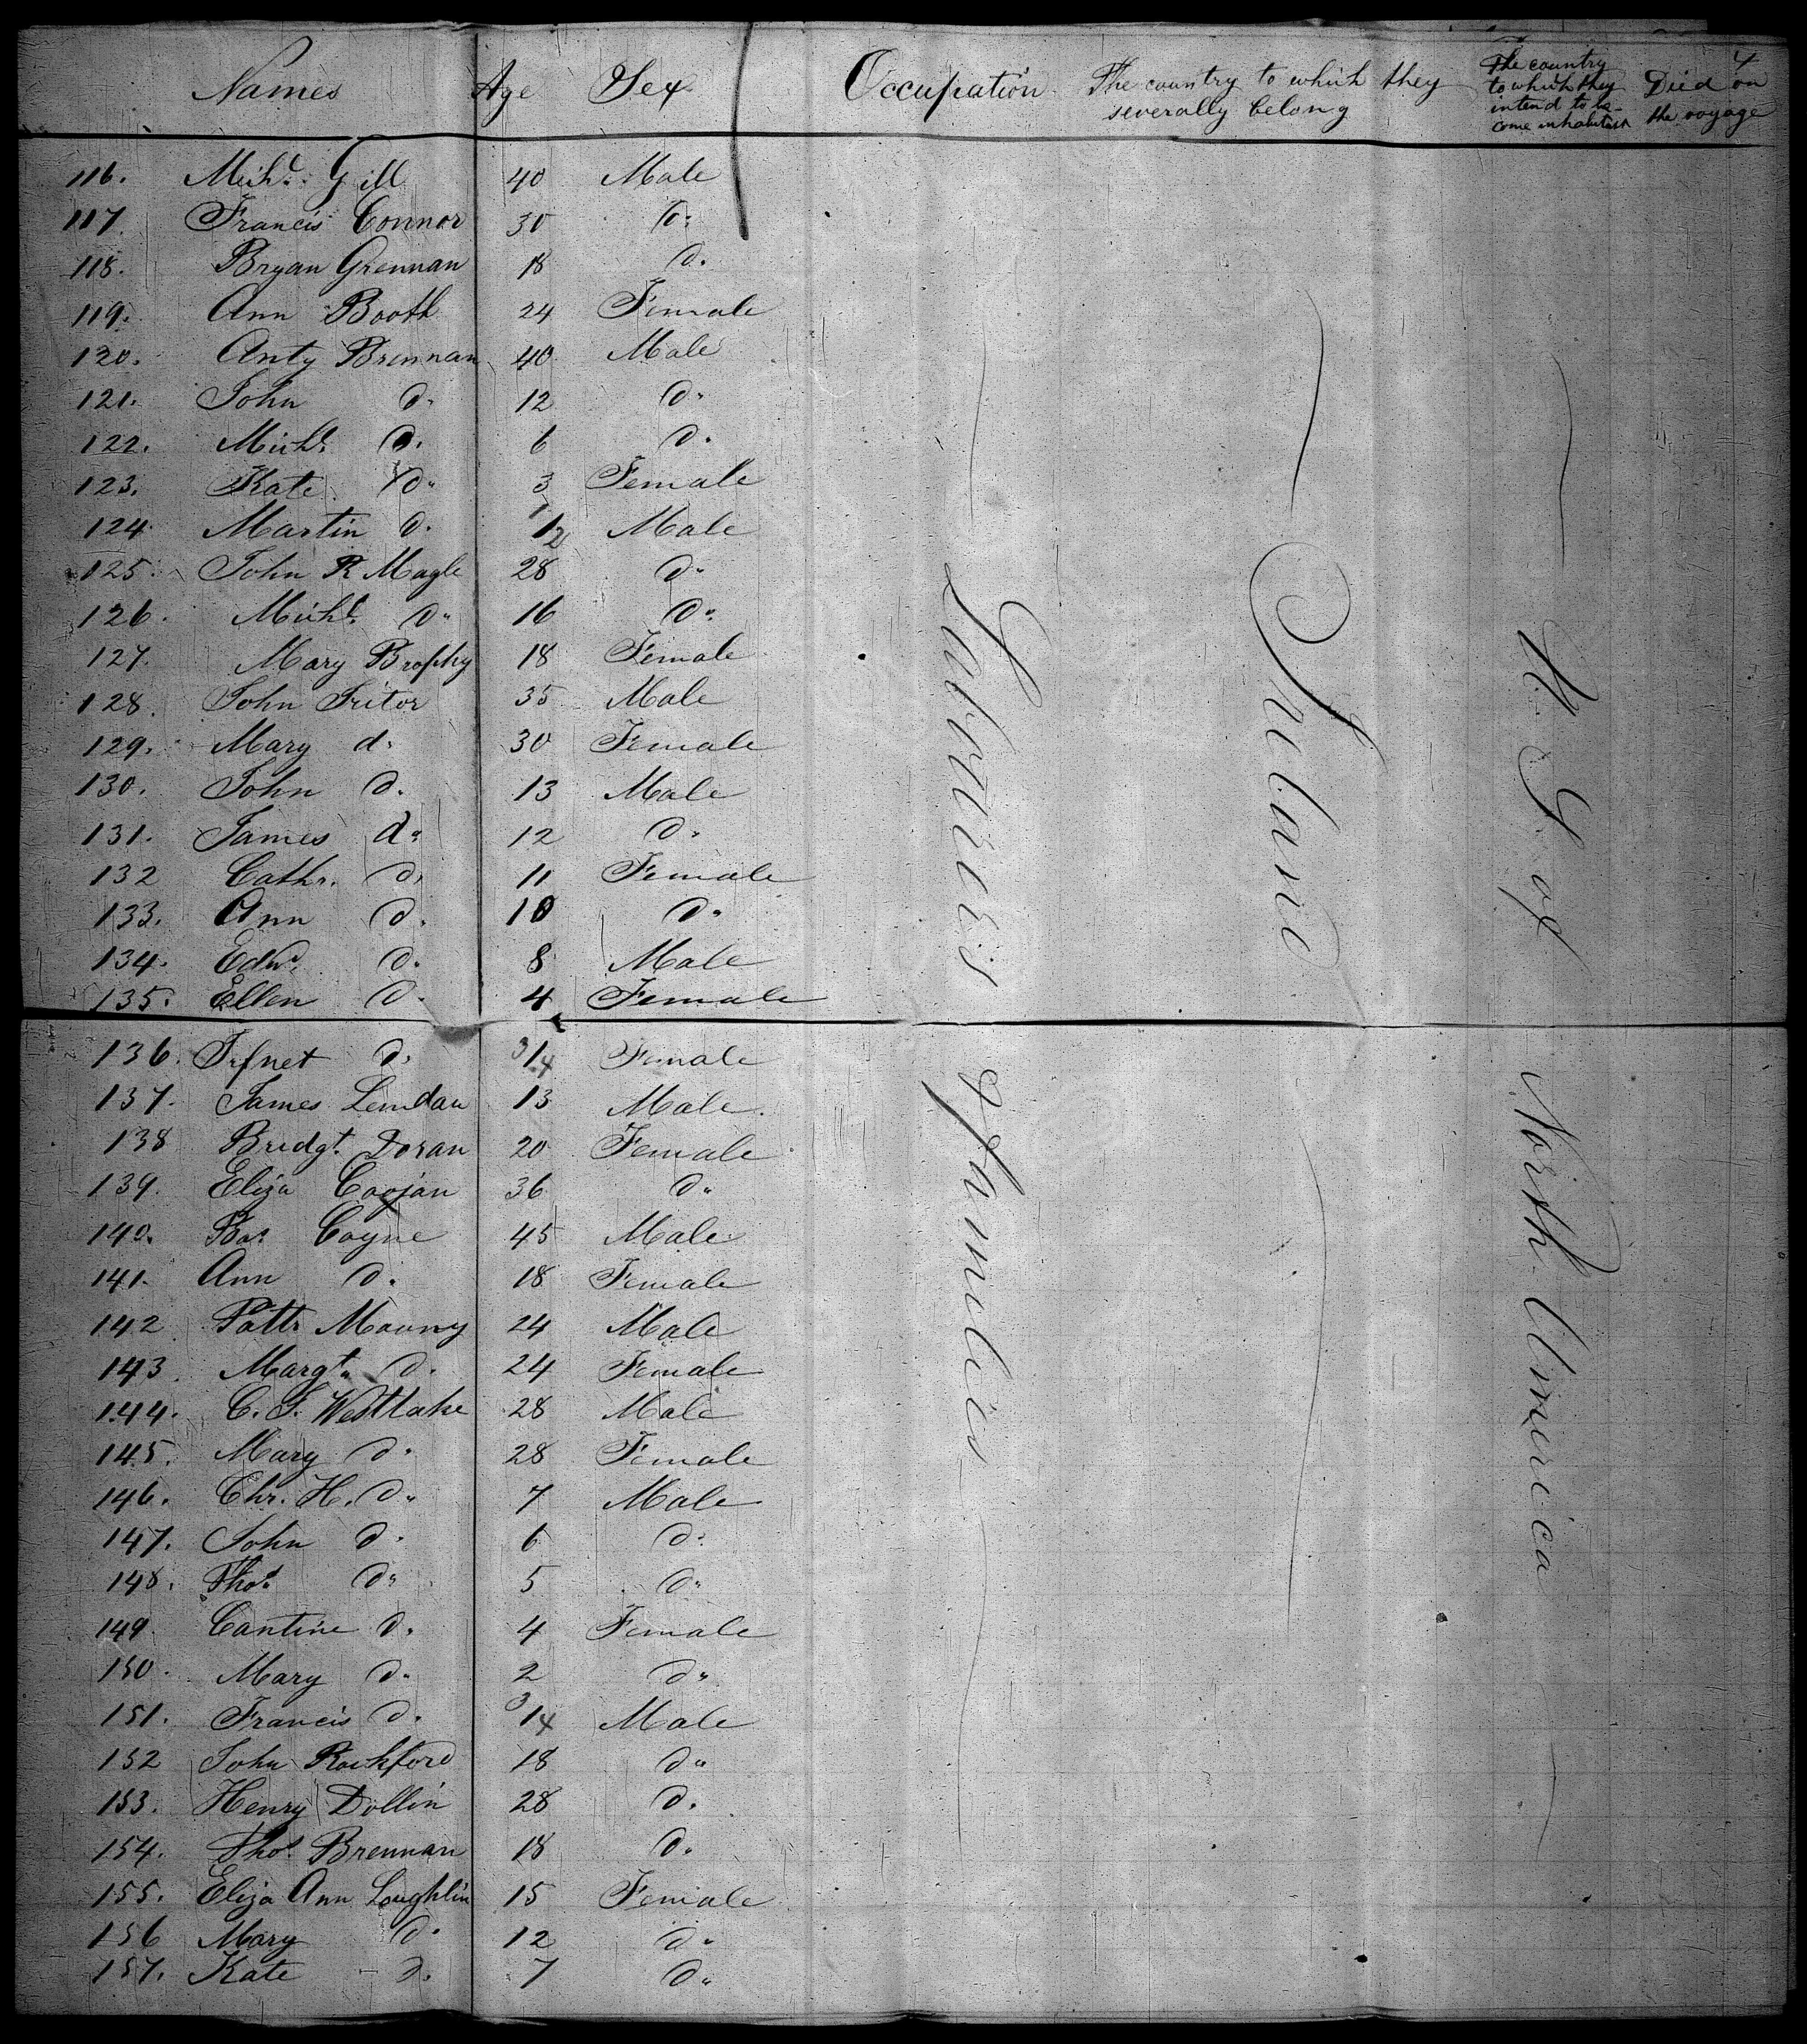 4
Names Age Sex Occupation The country to which they severally belong The country to which they intend to be-come inhabitants Died on the voyage
116. Michl. Gill 40 Male
117. Francis Connor 30 Do.
118. Bryan Grennan 18 Do.
119. Ann Booth 24 Female
120. Anty Brennan 40 Male
121. John Do. 12 Do.
122. Michl. Do. 6 Do.
123. Kate Do. 3 Female
124. Martin Do. 1/12 Male
125. John R Magle 28 Do.
126. Michl. Do. 16 Do.
127. Mary Brophy 18 Female
128. John Tritor 35 Male
129. Mary do. 30 Female
130. John Do. 13 Male
131. James do. 12 Do.
132 Cathr. Do. 11 Female
133. Ann Do. 10 Do.
134. Edwd. Do. 8 Male
135. Ellen Do. 4 Female
136. Do. 3/4 Female
137. James 13 Male
138 Bridgt. Doran 20 Female
139. Eliza 36 Do.
140. Coyne 45 Male
141. Ann Do. 18 Female
142 Pattk Mauny 24 Male
143. Margt. Do. 24 Female
144. C. S. Westlake 28 Male
145. Mary Do. 28 Female
146. Chr. H. Do. 7 Male
147. John Do. 6 Do.
148. Thos. Do. 5 Do.
149 Cantine Do. 4 Female
150. Mary Do. 2 Do.
151. Francis Do. 3/4 Male
152 John Rockford 18 Do.
153. Henry Dollin 28 Do.
154. Thos. Brennan 18 Do.
155. Eliza Ann Loughlin 15 Female
156 Mary Do. 12 Do.
157. Kate Do. 7 Do.
Labourers & families
Ireland
U. S of North America